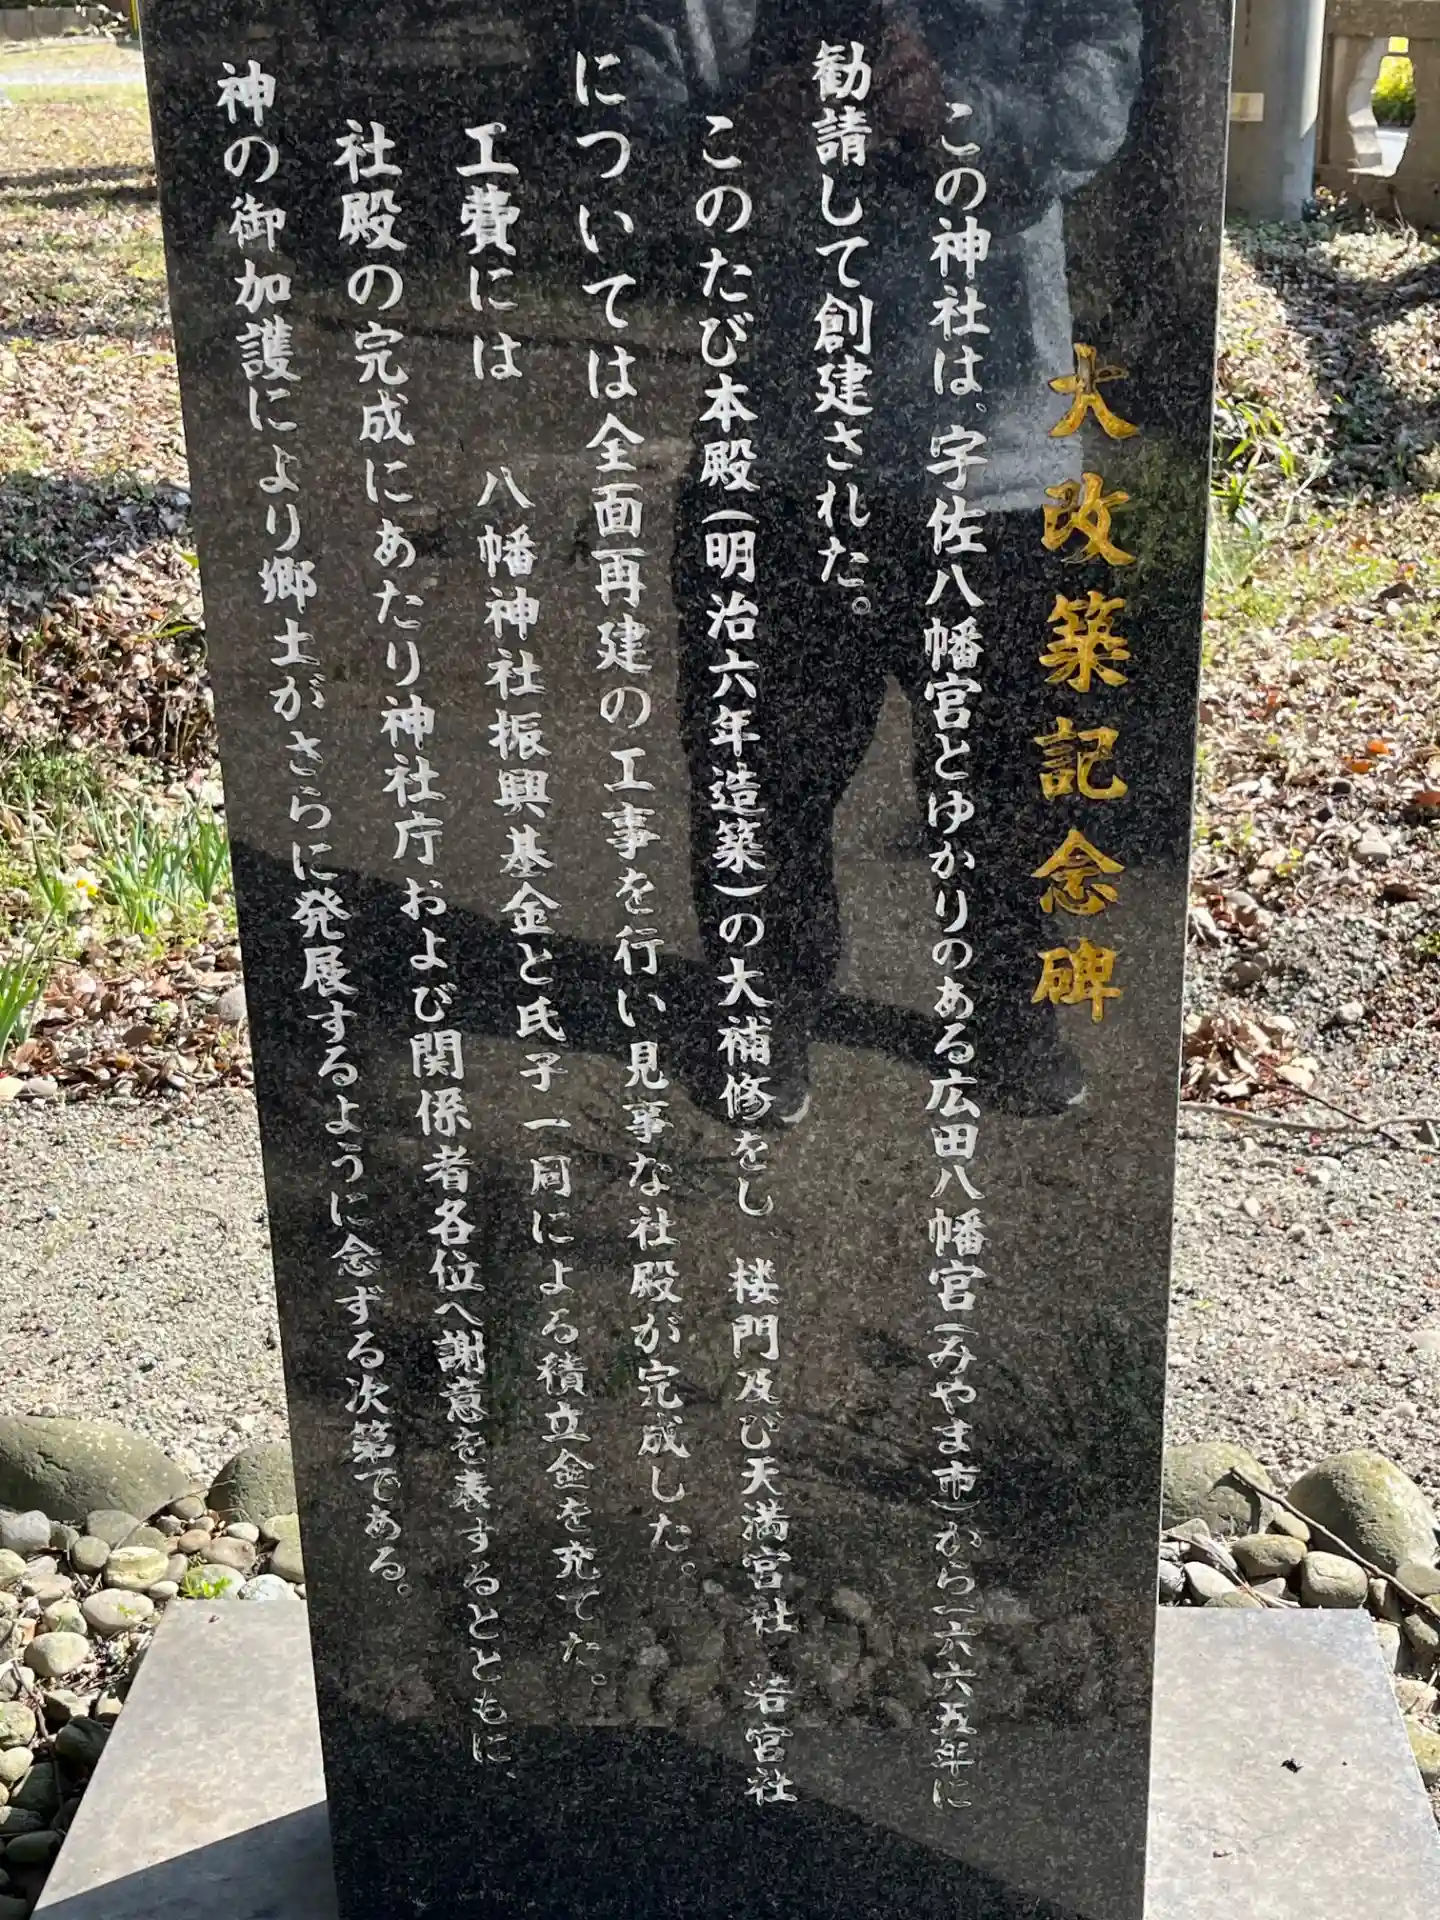 大改築記念碑
この神社は、宇佐八幡宮とゆかりのある広田八幡宮(みやま市)から一六六五年に
勧請して創建された。
このたび本殿(明治六年造築)の大補修をし、楼門及び天満宮社 若宮社
については全面再建の工事を行い見事な社殿が完成した。
工費には 八幡神社振興基金と氏子一同による積立金を充てた。
社殿の完成にあたり神社庁および関係者各位へ謝意を表するとともに、
神の御加護により郷土がさらに発展するように念ずる次第である。